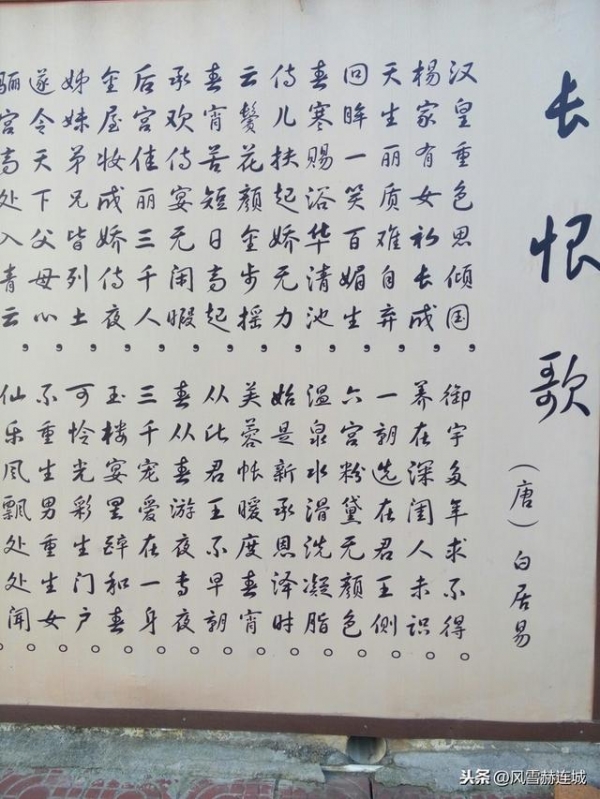 长恨歌
（唐）白居易
汉皇重色思倾国，御宇多年求不得。
杨家有女初长成，养在深闺人未识。
天生丽质难自弃，一朝选在君王侧。
回眸一笑百媚生，六宫粉黛无颜色。
春寒赐浴华清池，温泉水滑洗凝脂。
侍儿扶起娇无力，始是新承恩泽时。
云鬓花颜金步摇，芙蓉帐暖度春宵。
春宵苦短日高起，从此君王不早朝。
承欢侍宴无闲暇，春从春游夜专夜。
后宫佳丽三千人，三千宠爱在一身。
金屋妆成娇侍夜，玉楼宴罢醉和春。
姊妹弟兄皆列土，可怜光彩生门户。
遂令天下父母心，不重生男重生女。
骊宫高处入青云，仙乐风飘处处闻。
头条@风雪赫连城